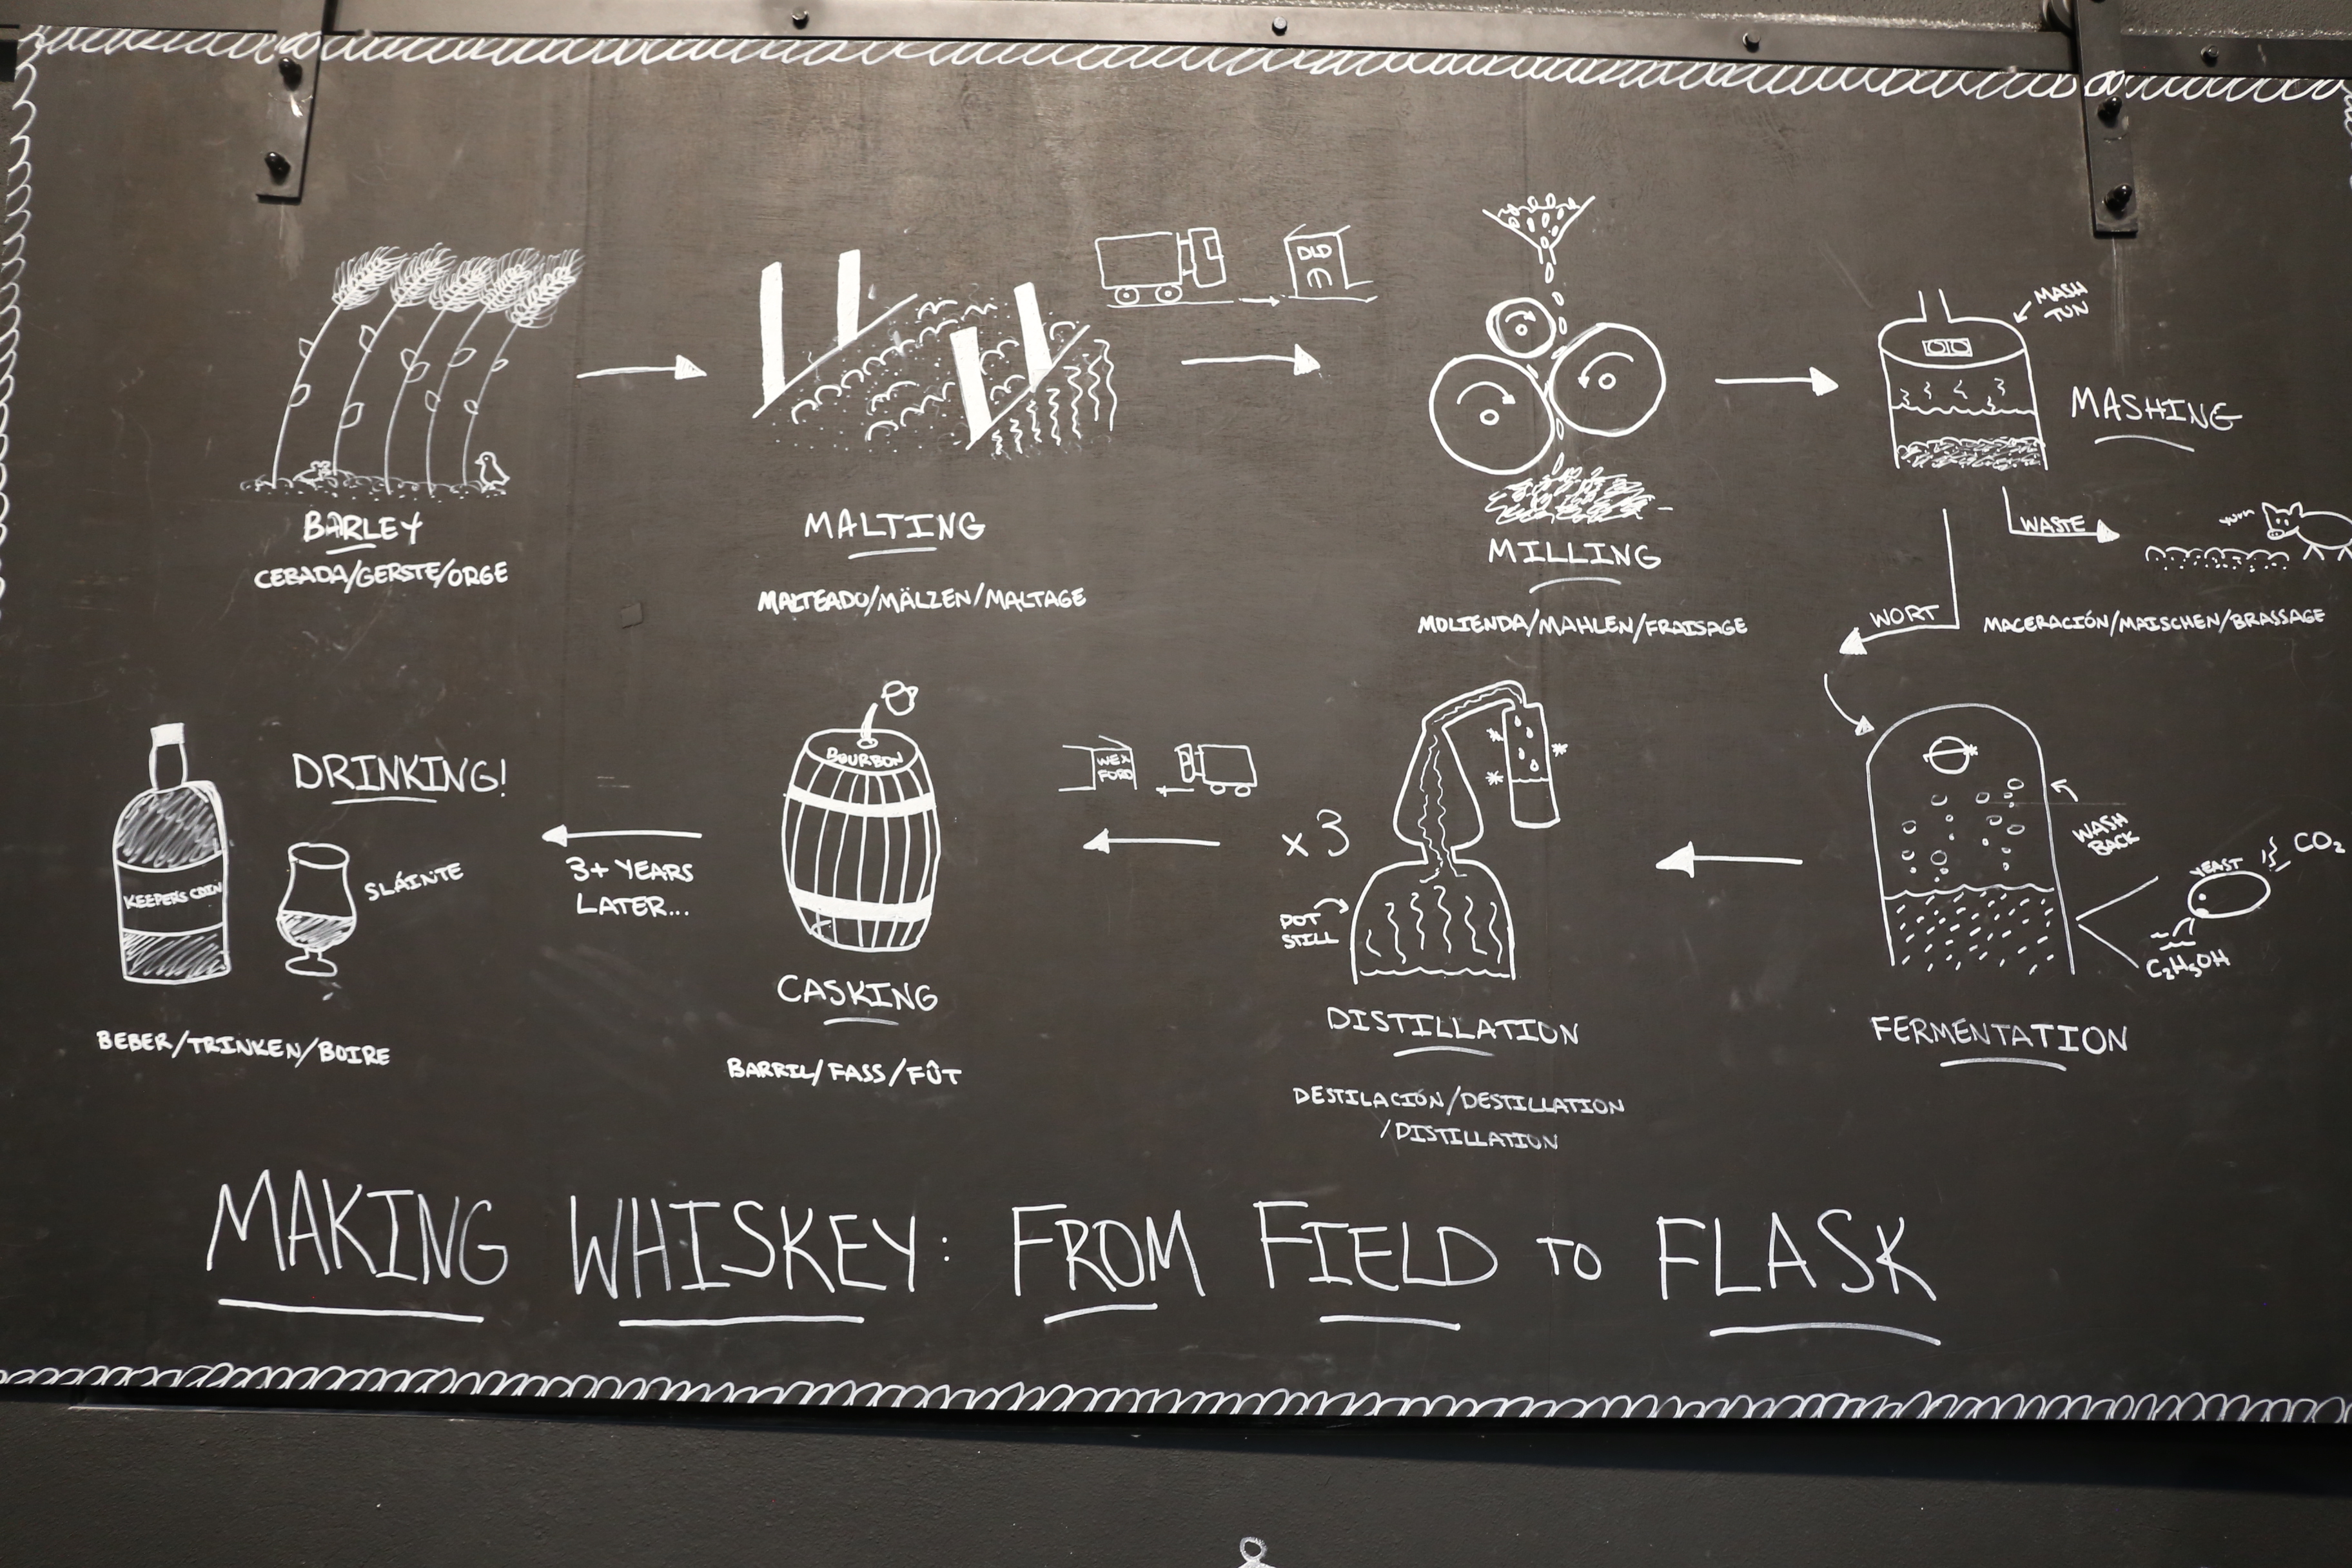 DLD
MASH
TUN
MASHING
BARLEY
CEBADA/GERSTE/ORGE
MALTING
MALTEADO/MÄLZEN/MALTAGE
MILLING
MOLIENDA/MAHLEN/FRAISAGE
WASTE
WORT
MACERACIÓN/MAISCHEN/BRASSAGE
DRINKING!
KEEPERS COIN
SLÁINTE
BEBER/TRINKEN/BOIRE
3+ YEARS
LATER...
BOURBON
CASKING
BARRIL/FASS/FÛT
WEX
FORD
x3
POT
STILL
DISTILLATION
DESTILACIÓN/DESTILLATION
/DISTILLATION
WASH
BACK
YEAST
CO₂
C₂H₅OH
FERMENTATION
MAKING WHISKEY: FROM FIELD TO FLASK